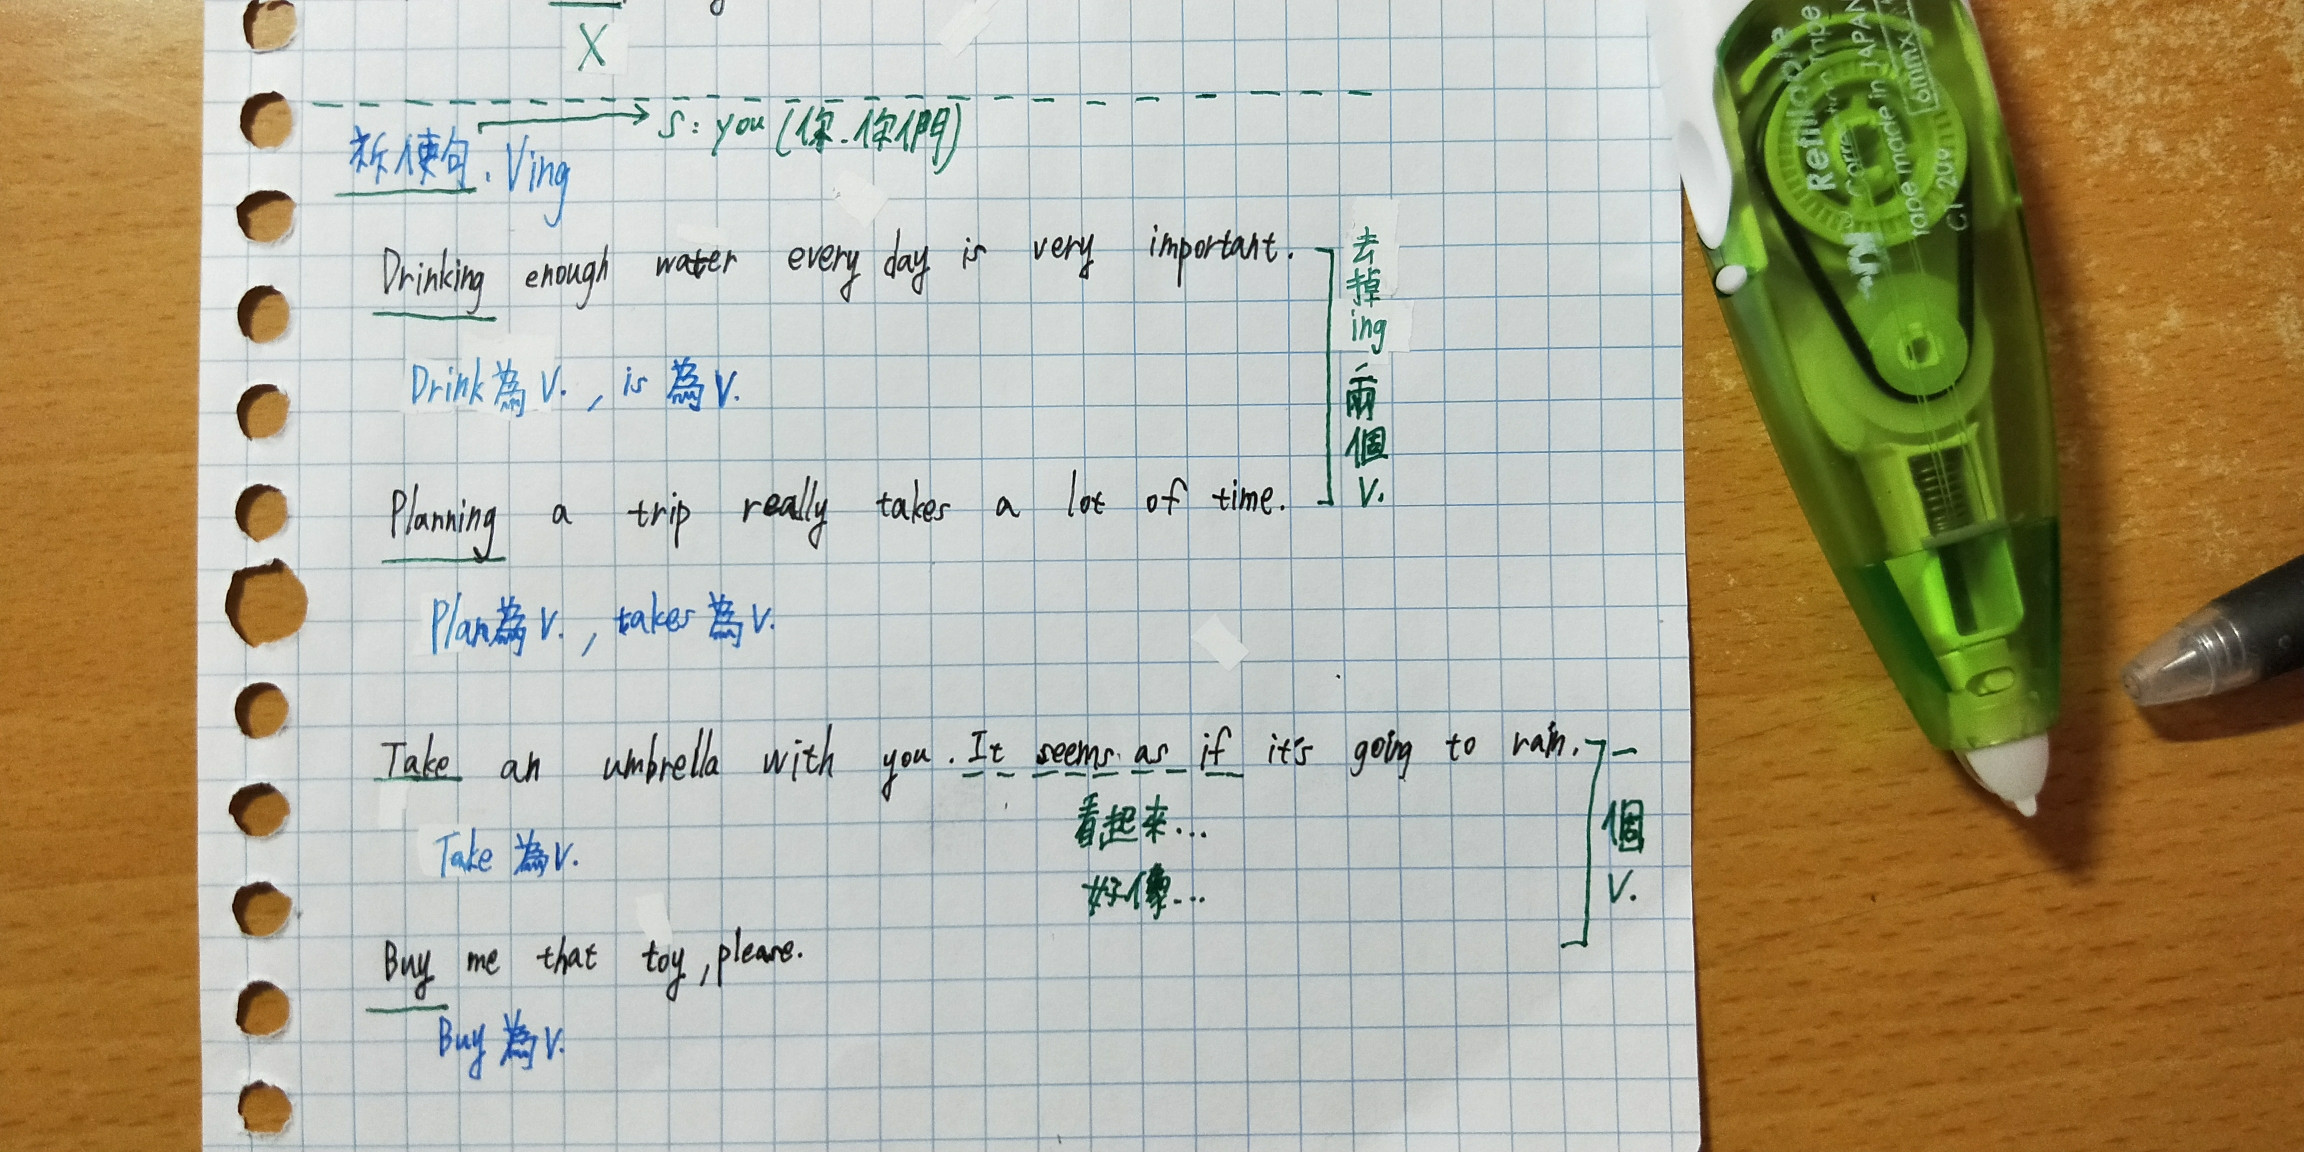 X
S: you (你.你們)
祈使句. Ving
Drinking enough water every day is very important.
去掉ing二兩個V.
Drink為V. , is 為V.
Planning a trip really takes a lot of time.
Plan為V. , takes為V.
Take an umbrella with you. It seems as if it's going to rain.
一個V.
看起來...
Take 為V.
好像...
Buy me that toy, please.
Buy 為V.
Refillable
Correction Tape
tape made in JAPAN
6mmX